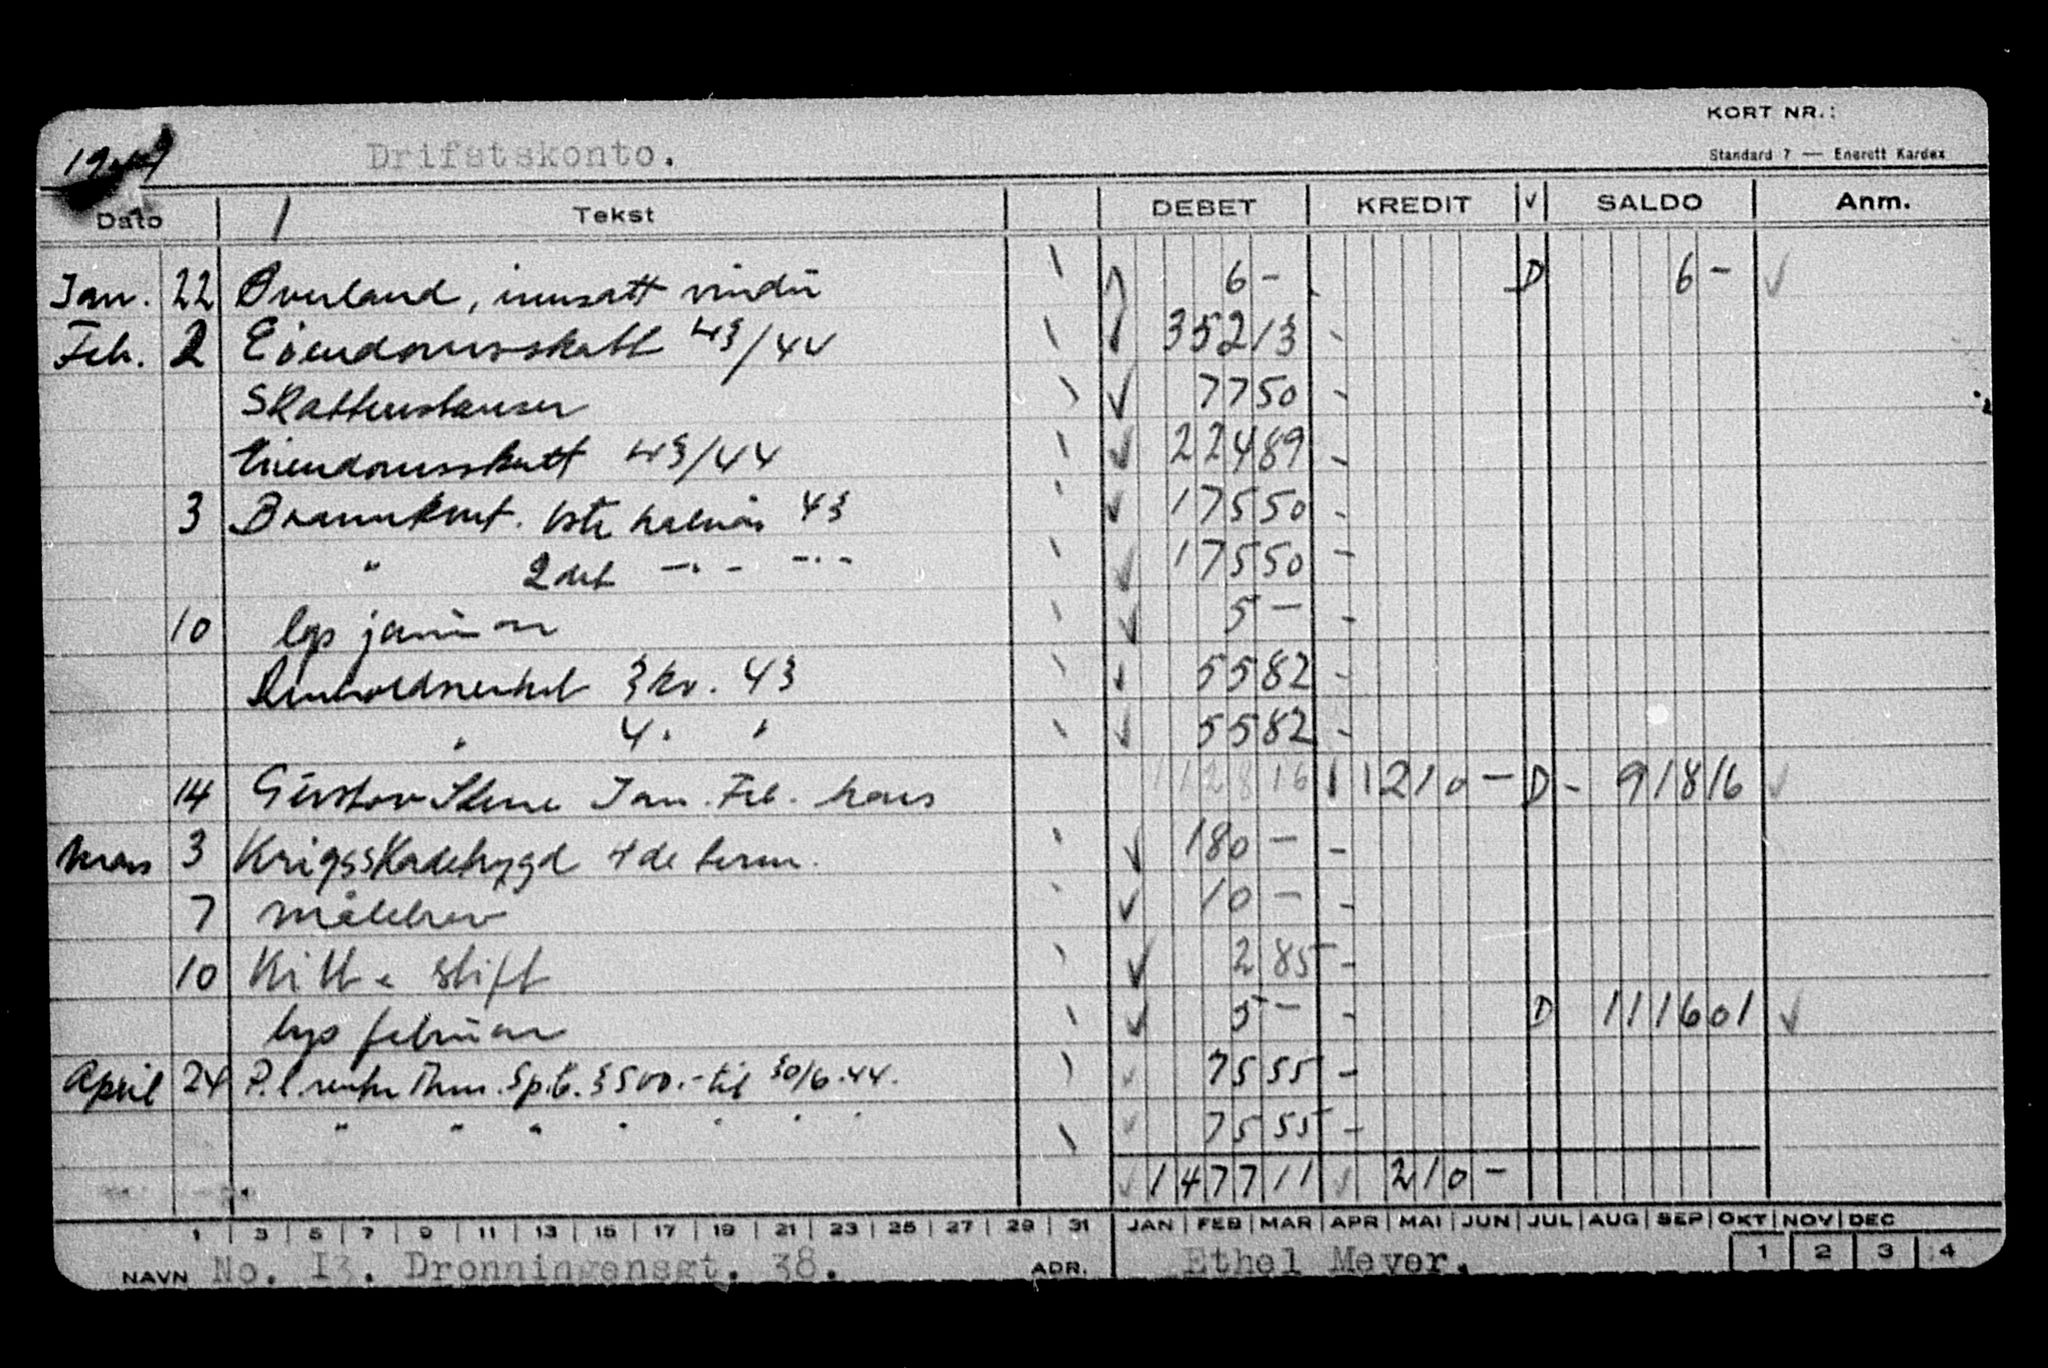 KORT NR.:
1944 Drifstskonto. Standard 7 — Enerett Kardex
Dato Tekst DEBET KREDIT V SALDO Anm.
Jan. 22 Øverland, innsatt vindu 6 - D 6 -
Feb. 2 Eiendomsskatt 43/44 352 13
Skattens 77 50
Eiendomsskatt 43/44 224 89
3 Brannkont. 1ste halvår 43 175 50
" 2det -"- -"- 175 50
10 lys januar 5 -
Renholdsverket 3 kv. 43 55 82
" 4 " " 55 82
14 Gustav Jan. Feb. hors 1128 16 210 - D 918 16
Mars 3 Krigsskadetrygd 4de term. 180 -
7 målebrev 10 -
10 Kitt & stift 2 85
lys februar 5 - D 1116 01
April 24 P.l. renter Thm. Sp.b. 3500.- til 30/6.44. 75 55
" " " " " " " 75 55
1477 11 210 -
1 3 5 7 9 11 13 15 17 19 21 23 25 27 29 31 JAN FEB MAR APR MAI JUN JUL AUG SEP OKT NOV DEC
NAVN No. I3. Dronningensgt. 38. ADR. Ethel Meyer. 1 2 3 4